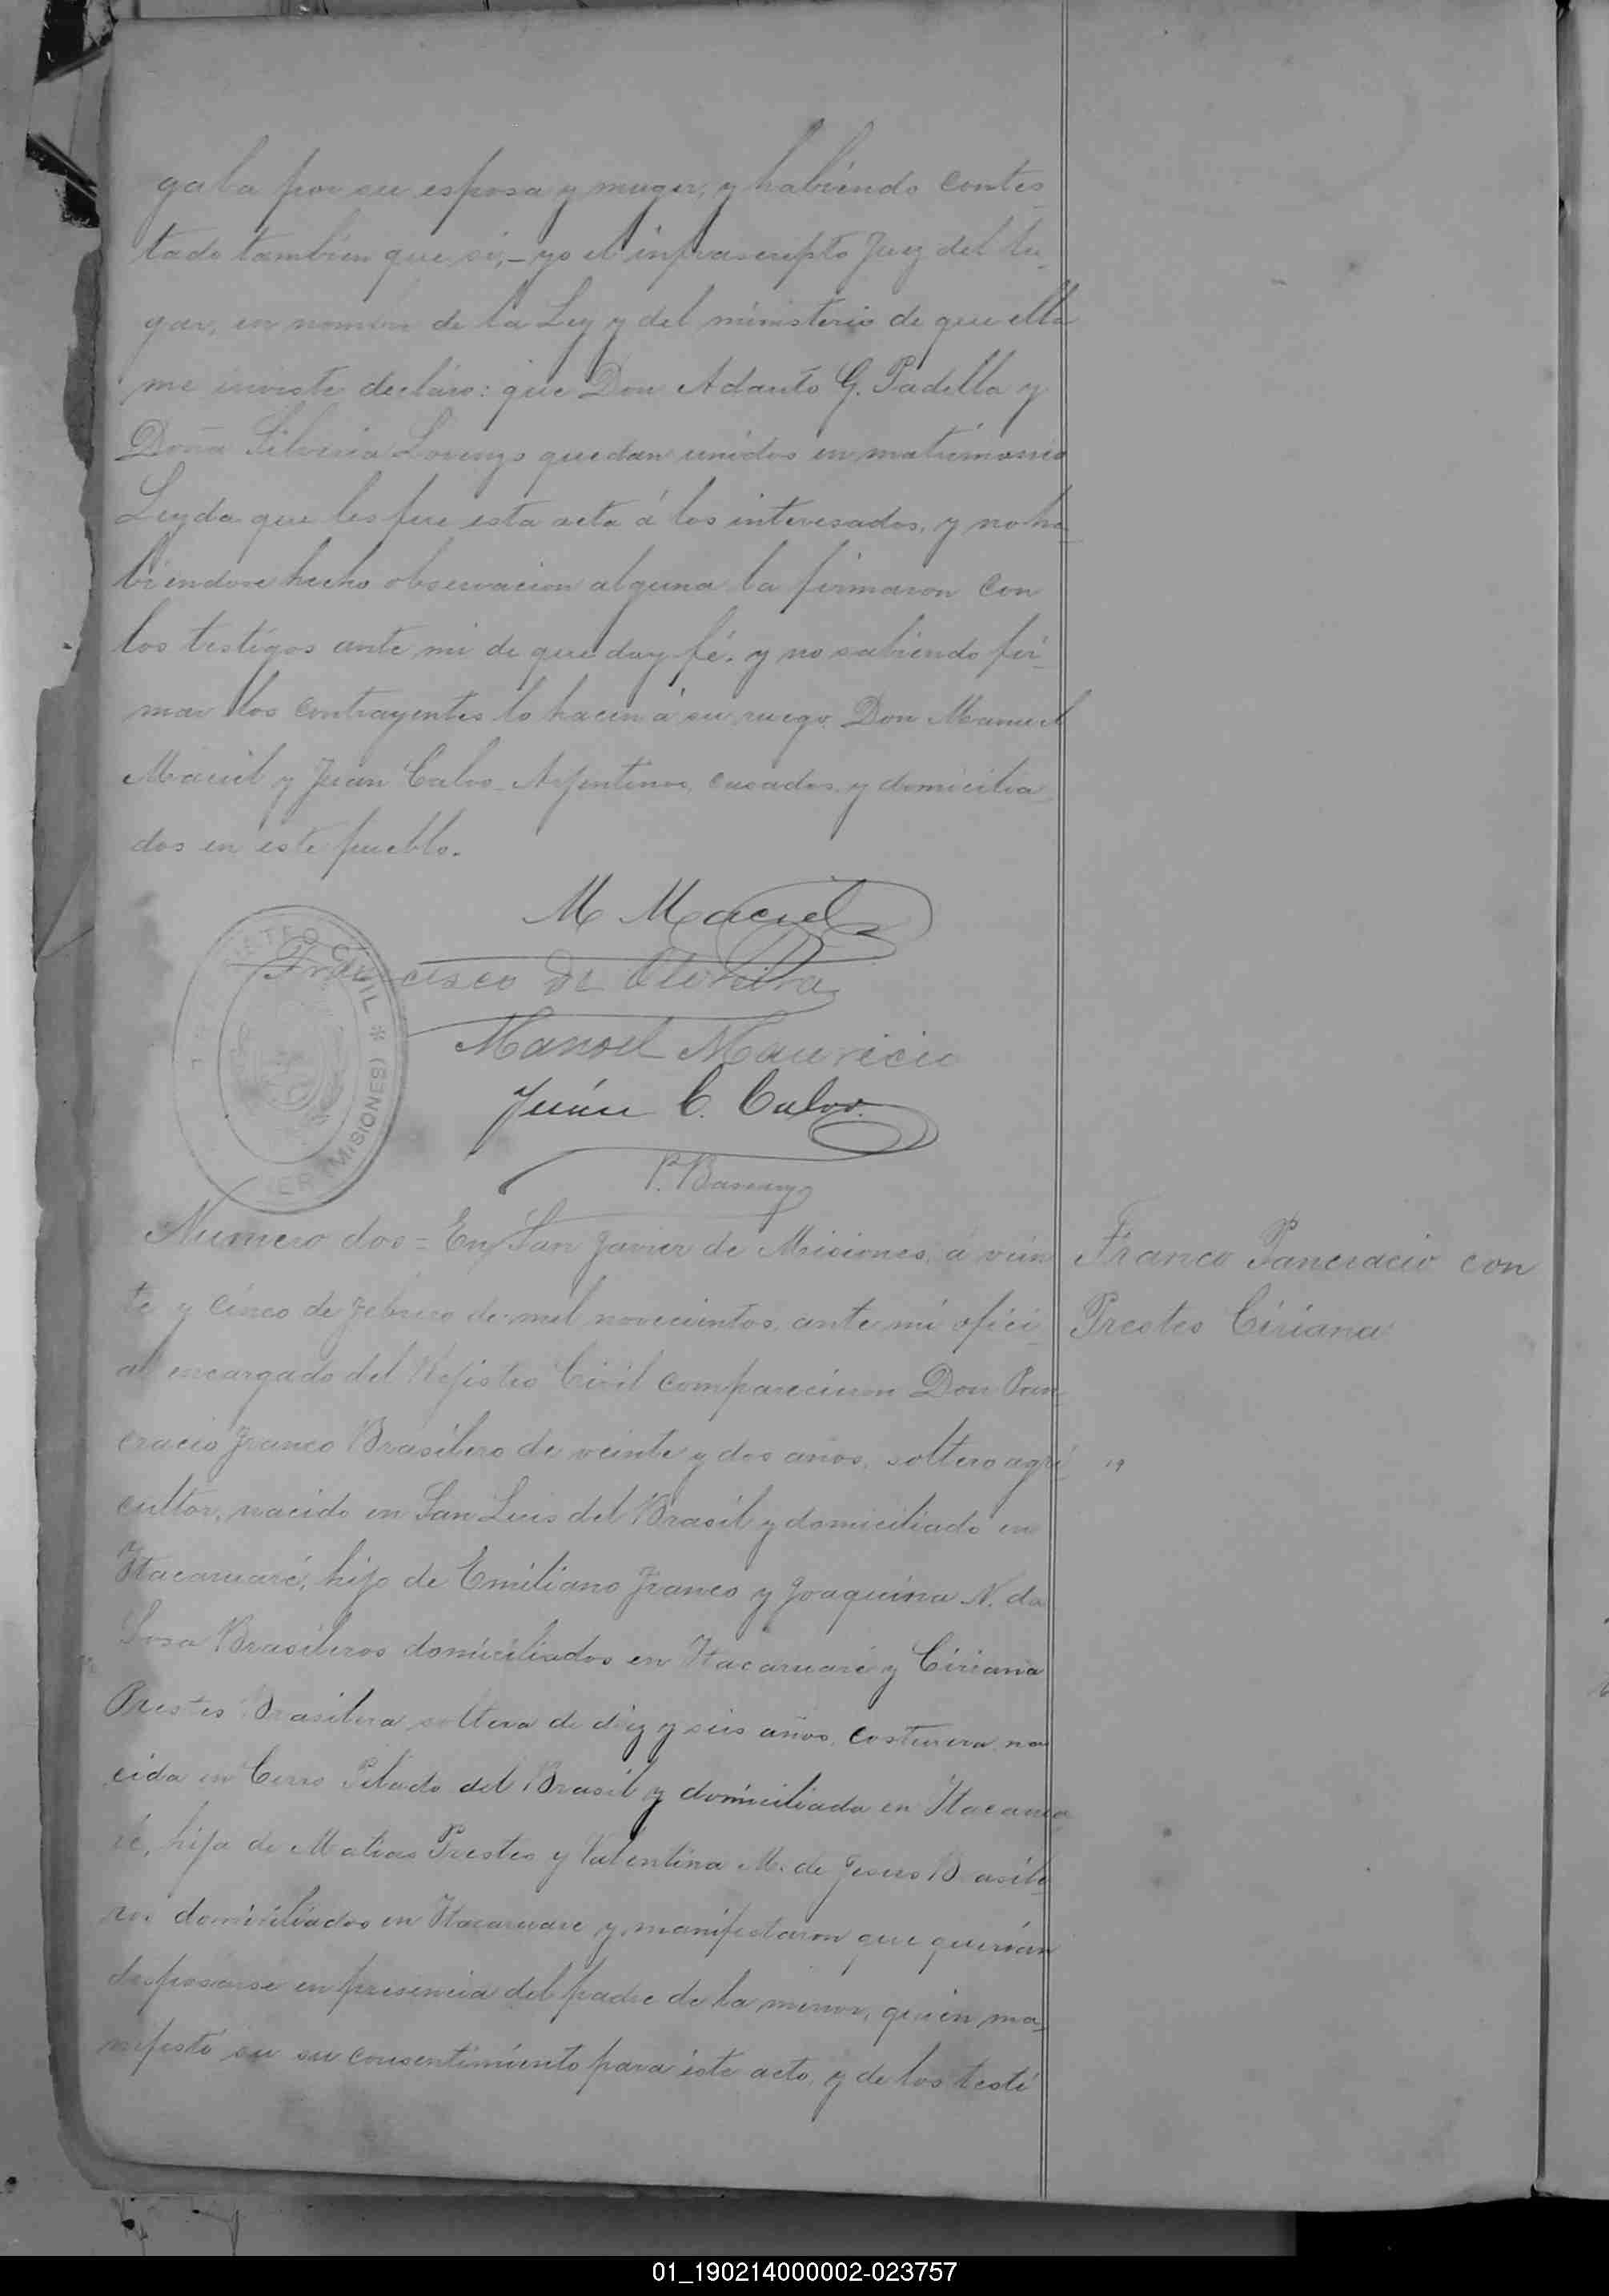 gaba por su esposa y muger, y habiendo contes
tado tambien que si,- yo el infrascripto Juez del lu_
gar, en nombre de la Ley y del ministerio de que ella
me inviste declaro: que Don Adauto G. Padilla y
Doña Silveria Lorenzo quedan unidos en matrimonio
Leyda que les fue esta acta á los interesados, y no ha_
biendose hecho observacion alguna la firmaron con
los testigos ante mi de que doy fé. y no sabiendo fir_
mar los contrayentes lo hacen á su ruego Don Manuel
Maciel y Juan Calvo Arjentinos, casados y domicilia
dos en este pueblo.
M Maciel
Francisco de Oliveira
Manoel Mauricio
Juán C. Calvo.
CIVIL * (MISIONES)
Numero dos = En San Javier de Misiones, á vein
te y cinco de Febrero de mil novecientos, ante mi ofici_
al encargado del Rejistro Civil comparecieron Don Pan_
cracio Franco Brasilero de veinte y dos años, soltero agri_
cultor, nacido en San Luis del Brasil y domiciliado en
Itacaruaré, hijo de Emiliano Franco y Joaquina N. da
Sosa Brasileros domiciliados en Itacaruaré y Ciriana
Prestes Brasilera soltera de diez y seis años, costurera na
cida en Cerro Pelado del Brasil y domiciliada en Itacarua
ré, hija de Matias Prestes y Valentina M. de Jesus Brasile
ros domiciliados en Itacaruare y manifestaron que querian
desposarse en presencia del padre de la menor, quien ma_
nifestó su su consentimiento para este acto, y de los testi
Franco Pancracio con
Prestes Ciriana
01_190214000002-023757